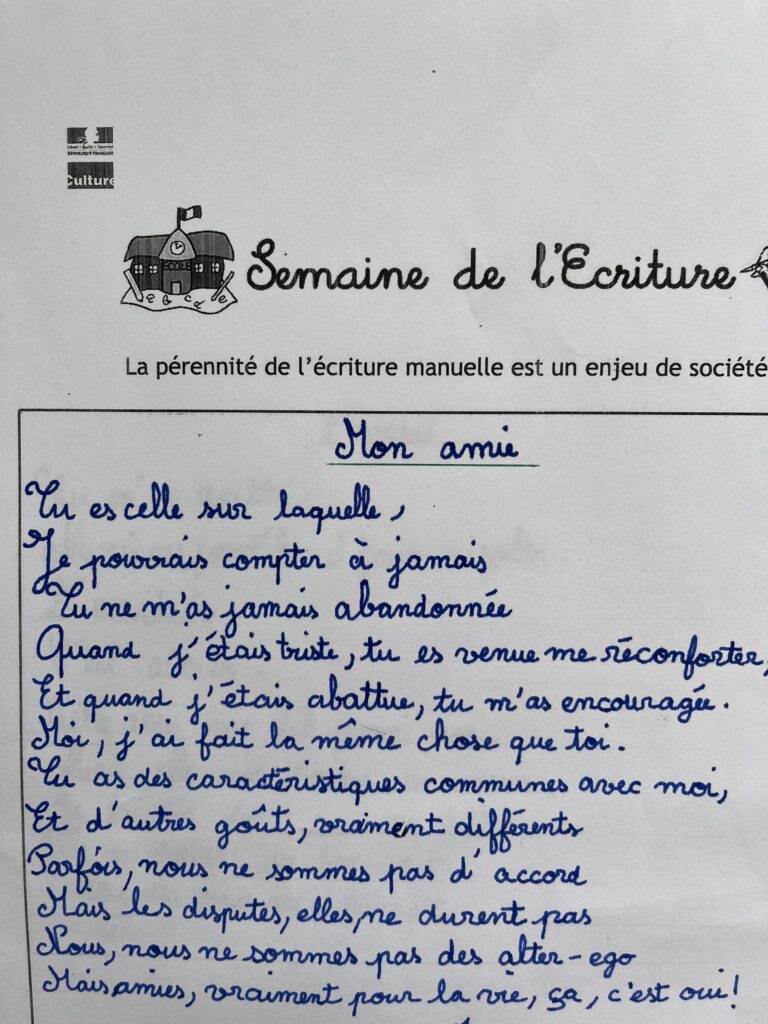 RÉPUBLIQUE FRANÇAISE
Culture
ÉCOLE
Semaine de l'Ecriture
La pérennité de l'écriture manuelle est un enjeu de société
Mon amie
Tu es celle sur laquelle,
Je pourrais compter à jamais
Tu ne m'as jamais abandonnée
Quand j'étais triste, tu es venue me réconforter,
Et quand j'étais abattue, tu m'as encouragée.
Moi, j'ai fait la même chose que toi.
Tu as des caractéristiques communes avec moi,
Et d'autres goûts, vraiment différents
Parfois, nous ne sommes pas d'accord
Mais les disputes, elles, ne durent pas
Nous, nous ne sommes pas des alter-ego
Mais, amies, vraiment pour la vie, ça, c'est oui!